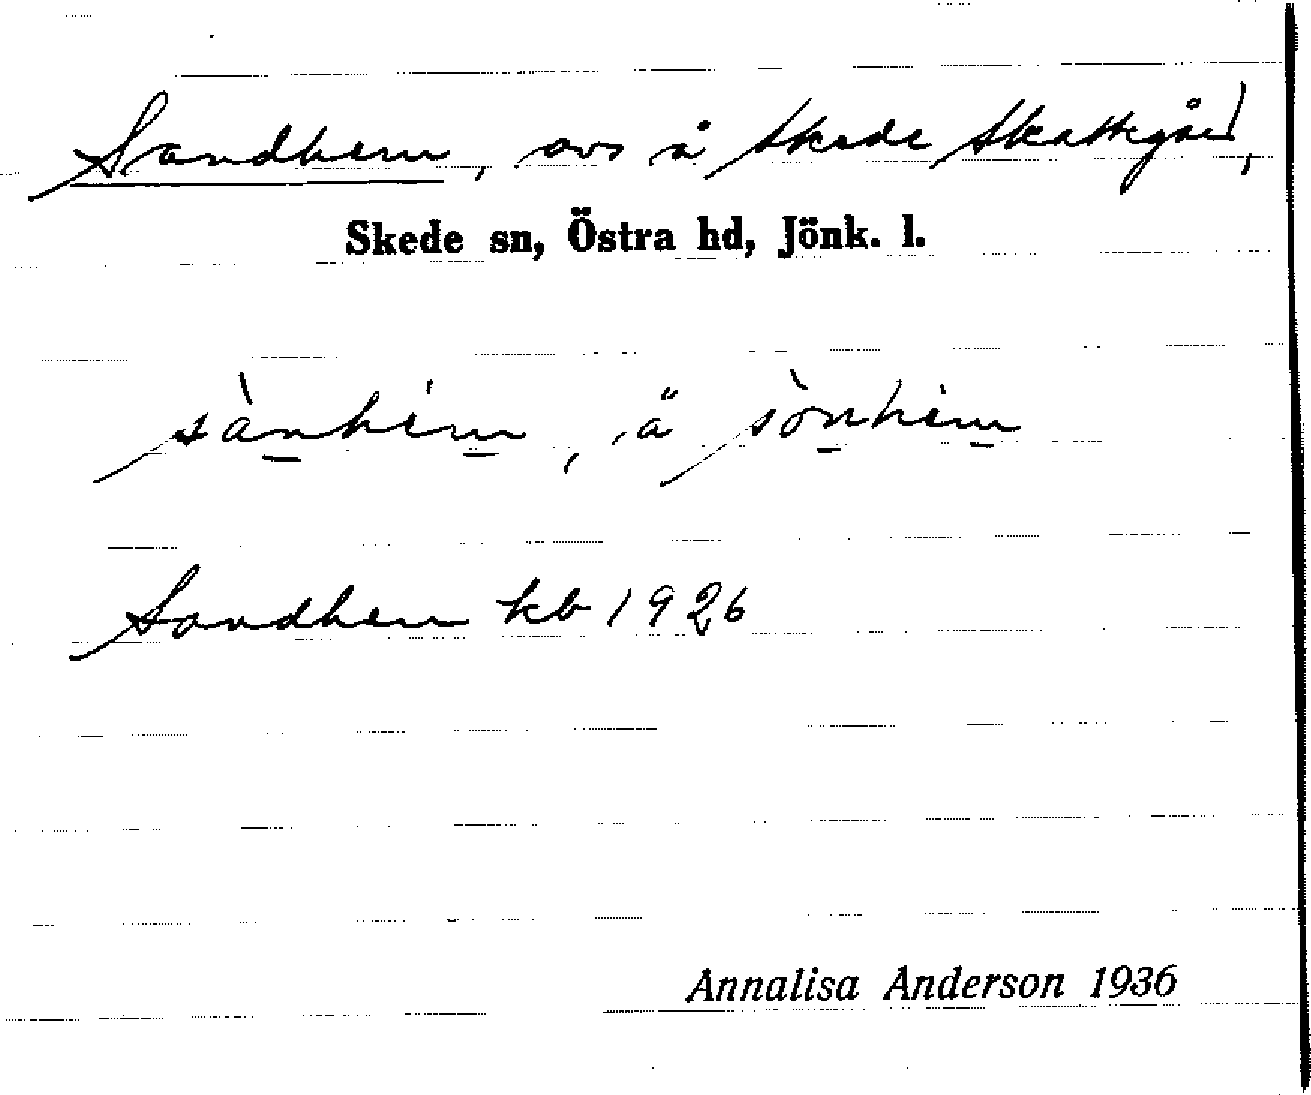 Sandhem, avs å Skede Skattegård,
Skede sn, Östra hd, Jönk. l.
sànhém, ä sònhém
Sandhem kb 1926
Annalisa Anderson 1936